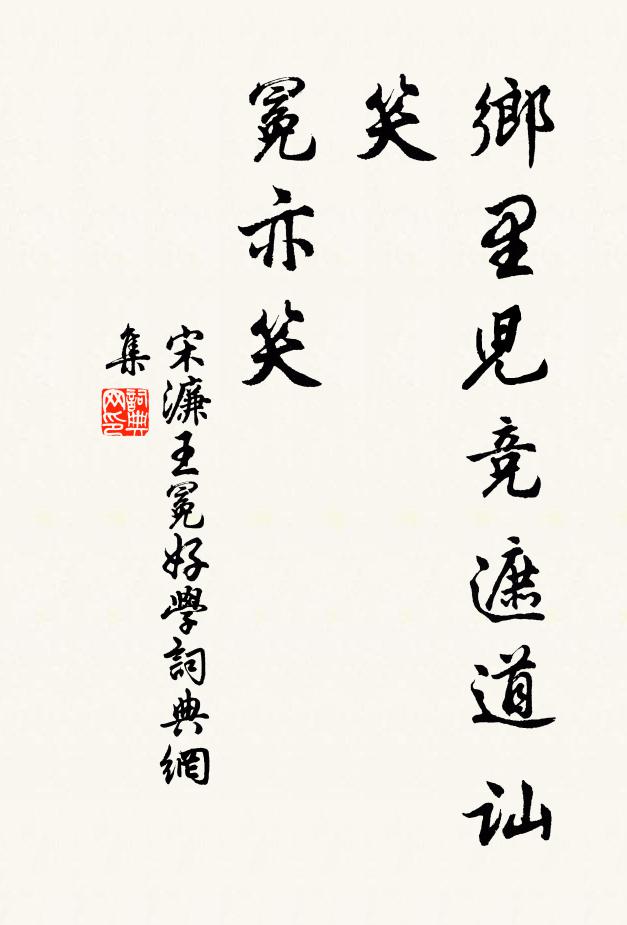 鄉里兒竞遮道讪
笑
冕亦笑
宋濂王冕好學詞典網
集
詞典
网印